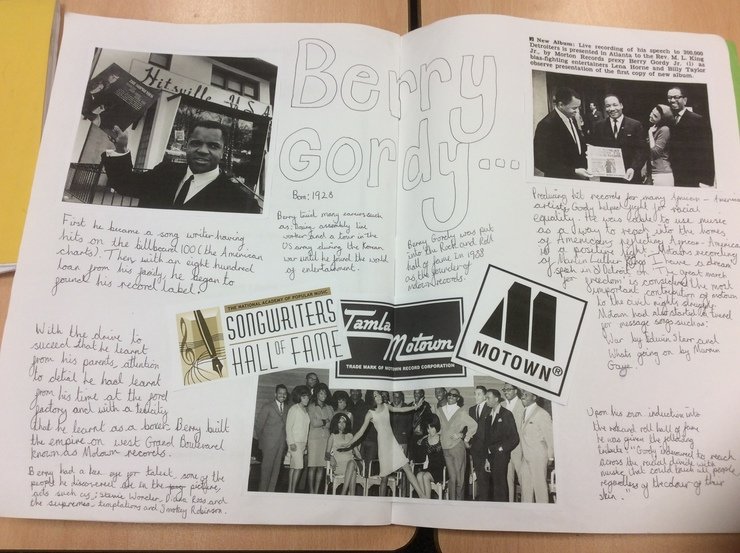 Berry
Gordy...
Hitsville U.S.A
Born: 1928
First he became a song writer having
hits on the billboard 100 (the American
charts). Then with an eight hundred
loan from his family, he began to
found his record label.
Berry tried many careers such
as: Boxing, assembly line
worker and a tour in the
US army during the Korean
war until he found the world
of entertainment.
Berry Gordy was put
into the Rock and Roll
hall of fame in 1988
as the founder of
motown records.
■ New Album: Live recording of his speech to 200,000
Detroiters is presented in Atlanta to the Rev. M. L. King
Jr., by Motown Records prexy Berry Gordy Jr. (l) as
bias-fighting entertainers Lena Horne and Billy Taylor
observe presentation of the first copy of new album.
Producing hit records for many African - American
artists, Gordy helped fight for racial
equality. He was able to use music
as a way to reach into the homes
of Americans, reflecting African-Americans
in a positive way. Motowns recording
of Martin Luther Kings I have a dream
speech in Detroit or The great march
for freedom is considered the most
important contribution of motown
to the civil rights struggle.
Motown had also started a trend
for message songs such as:
War by Edwin Starr and
Whats going on by Marvin
Gaye.
THE NATIONAL ACADEMY OF POPULAR MUSIC
SONGWRITERS
HALL OF FAME
Tamla
Motown
TRADE MARK OF MOTOWN RECORD CORPORATION
MOTOWN®
With the drive to
succeed that he learnt
from his parents, attention
to detail he had learnt
from his time at the ford
factory and with a tenacity
that he learnt as a boxer. Berry built
the empire on west Grand Boulevard
known as Motown records.
Berry had a key eye for talent, some of the
people he discovered are in the picture,
acts such as; Stevie Wonder, Diana Ross and
the supremes, temptations and Smokey Robinson.
Upon his own induction into
the rock and roll hall of fame
he was given the following
tribute "Gordy endeavored to reach
across the racial divide with
music that could touch all people,
regardless of the colour of their
skin."